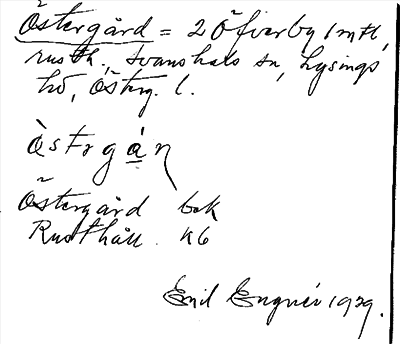 Östergård = 2 Öfverby 1 mtl,
rusth., Svanshals sn, Lysings
hd, Österg. l.
òstrgán
Östergård bok
Rusthåll K6
Emil Engnér 1929.